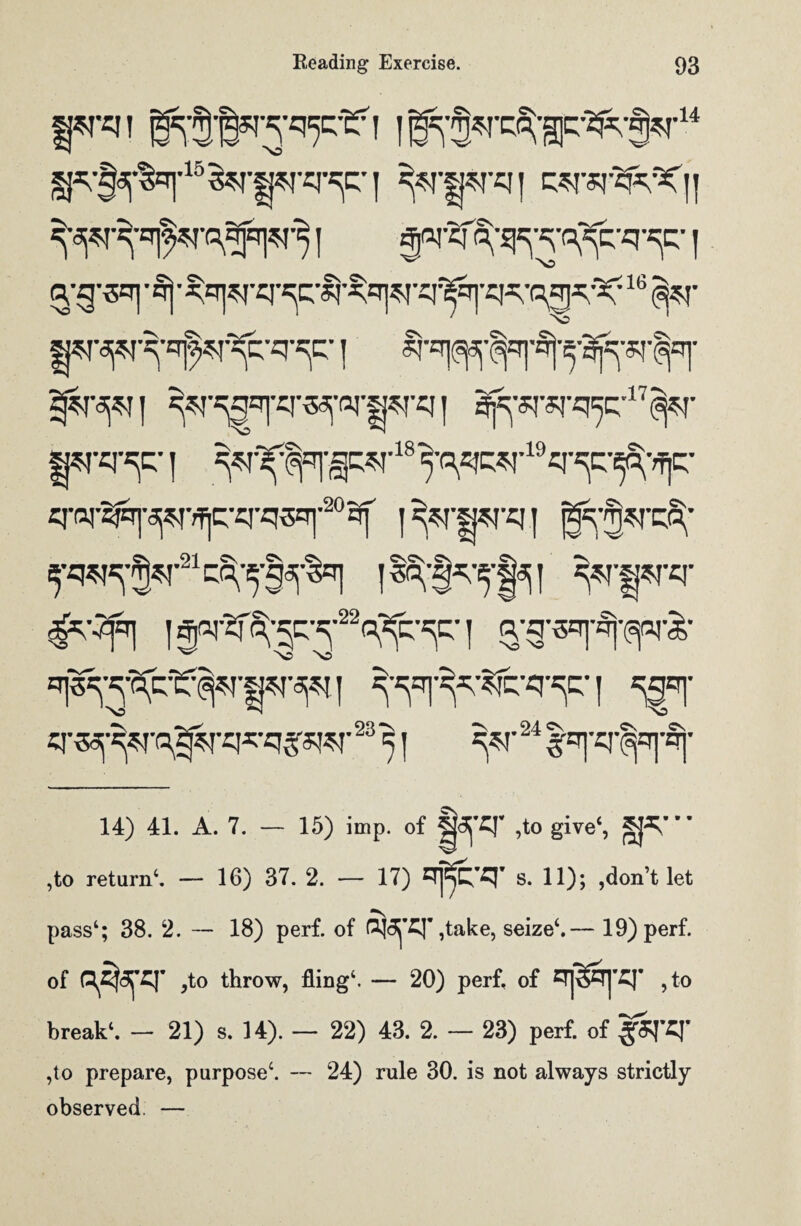 Reading Exercise. 93
སྨྲས་པ། ཁྱོད་ཀྱི་ཁྱིམ་དུ་བཏང་ངོ་། །ཁྱོད་ཀྱིས་ངའི་གླང་སྟོར་གྱིས་14
སླར་བྱིན་ཅིག་15ཅེས་སྨྲས་པ་དང་། དེས་སྨྲས་པ། ངས་མ་སྟོར་རོ༎
དེ་ནས་དེ་གཉིས་འགྲོགས་ཏེ། རྒྱལ་པོའི་ཐད་དུ་འདོང་བ་དང་།
འུ་བུ་ཅག་གི་རིགས་པ་དང་མི་རིགས་པ་རྟོག་པར་འགྱུར་རོ་16ཞེས་
སྨྲས་ནས་དེ་གཉིས་དོང་བ་དང་། མི་གཞན་ཞིག་གི་རྟ་རྒོད་མ་ཞིག་
བྲོས་ནས། དེས་དབྱུག་པ་ཅན་ལ་སྨྲས་པ། རྒོད་མ་མ་བཏང་17ཞེས་
སྨྲས་པ་དང་། དེས་རྡོ་ཞིག་བླངས་18ཏེ་འཕངས་19པ་དང་རྟའི་རྐང་
པ་ལ་ཕོག་ནས་རྐང་པ་བཅག་20གོ །དེས་སྨྲས་པ། ཁྱོད་ཀྱིས་ངའི་
རྟ་བསད་ཀྱིས་21ངའི་རྟ་བྱིན་ཅིག །ཅིའི་ཕྱིར་རྟ་སྦྱིན། དེས་སྨྲས་པ་
ཚུར་ཤོག །རྒྱལ་པོའི་དྲུང་དུ་22འདོང་དང་། འུ་བུ་ཅག་གི་ཞལ་ཆེ་
གཅད་དུ་འདོང་ངོ་ཞེས་སྨྲས་ནས། དེ་དག་དེར་སོང་བ་དང་། དབྱུག་
པ་ཅན་དེས་འབྲོས་པར་བརྩམས་23ཏེ། དེས་24རྩིག་པ་ཞིག་གི་
14) 41. A. 7. — 15) imp. of སྦྱིན་པ་ ,to give‘, སླར་···
,to return‘. — 16) 37. 2. — 17) གཏོང་བ་ s. 11); ,don’t let
pass‘; 38. 2. — 18) perf. of ལེན་པ་ ,take, seize‘.— 19) perf.
of འཕེན་པ་ ,to throw, fling‘. — 20) perf. of གཅོག་པ་ ,to
break‘. — 21) s. 14). — 22) 43. 2. — 23) perf. of རྩོམ་པ་
,to prepare, purpose‘. — 24) rule 30. is not always strictly
observed. —